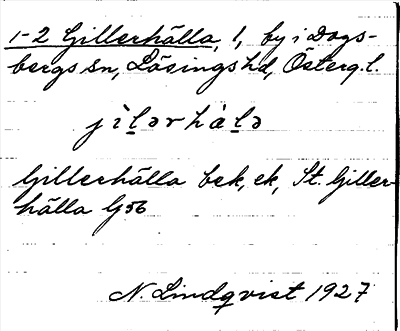 1-2 Gillerhälla, 1, by i Dags-
bergs sn, Lösings hd, Österg. l.
jìl̲ər hàl̲ə
Gillerhälla bek, ek, St. Giller-
hälla G56
N. Lindqvist 1927